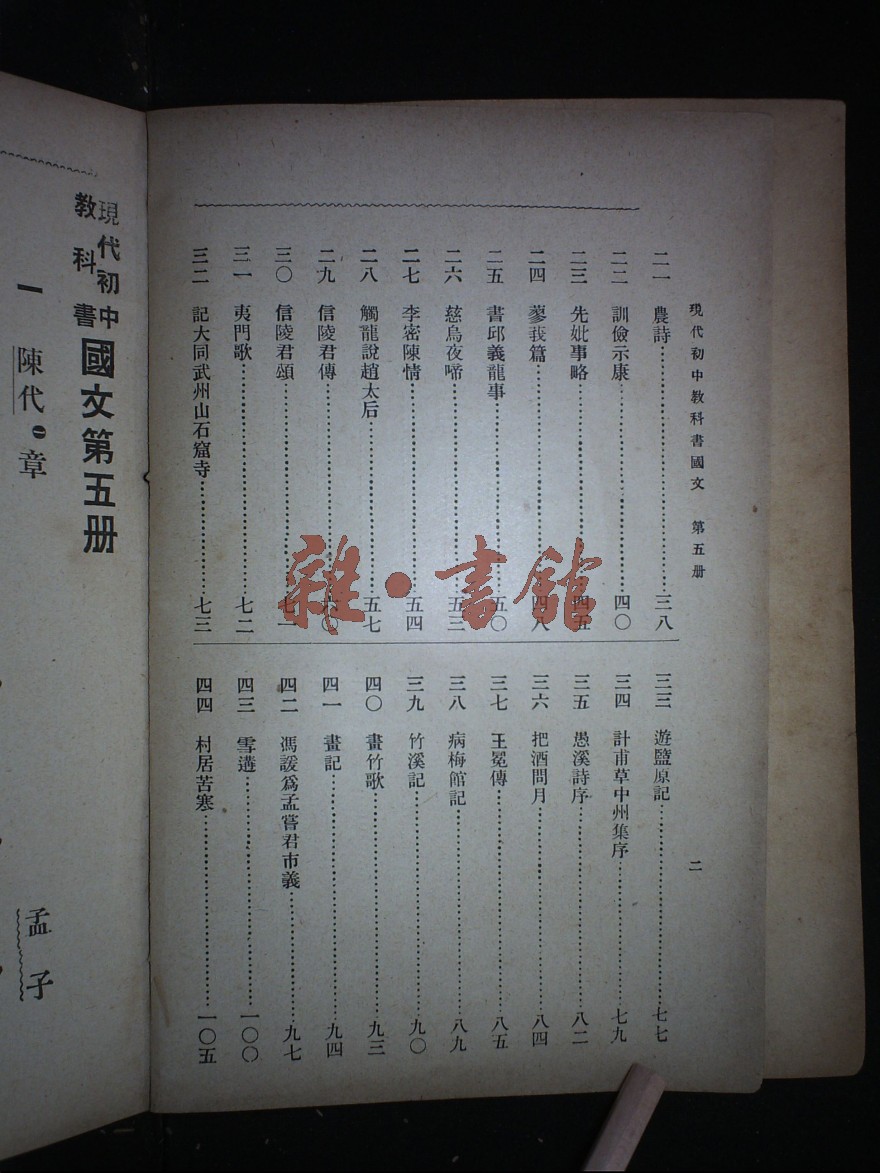 現代初中教科書國文 第五册
二
二一 農詩 三八
二二 訓儉示康 四〇
二三 先妣事略 四五
二四 蓼莪篇 四八
二五 書邱義龍事 五〇
二六 慈烏夜啼 五三
二七 李密陳情 五四
二八 觸龍說趙太后 五七
二九 信陵君傳 六〇
三〇 信陵君頌 七一
三一 夷門歌 七二
三二 記大同武州山石窟寺 七三
三三 遊鹽原記 七七
三四 計甫草中州集序 七九
三五 愚溪詩序 八二
三六 把酒問月 八四
三七 王冕傳 八五
三八 病梅館記 八九
三九 竹溪記 九〇
四〇 畫竹歌 九三
四一 畫記 九四
四二 馮諼爲孟嘗君市義 九七
四三 雪遘 一〇〇
四四 村居苦寒 一〇五
現代初中教科書 國文第五册
一 陳代章
孟子
雜·書館